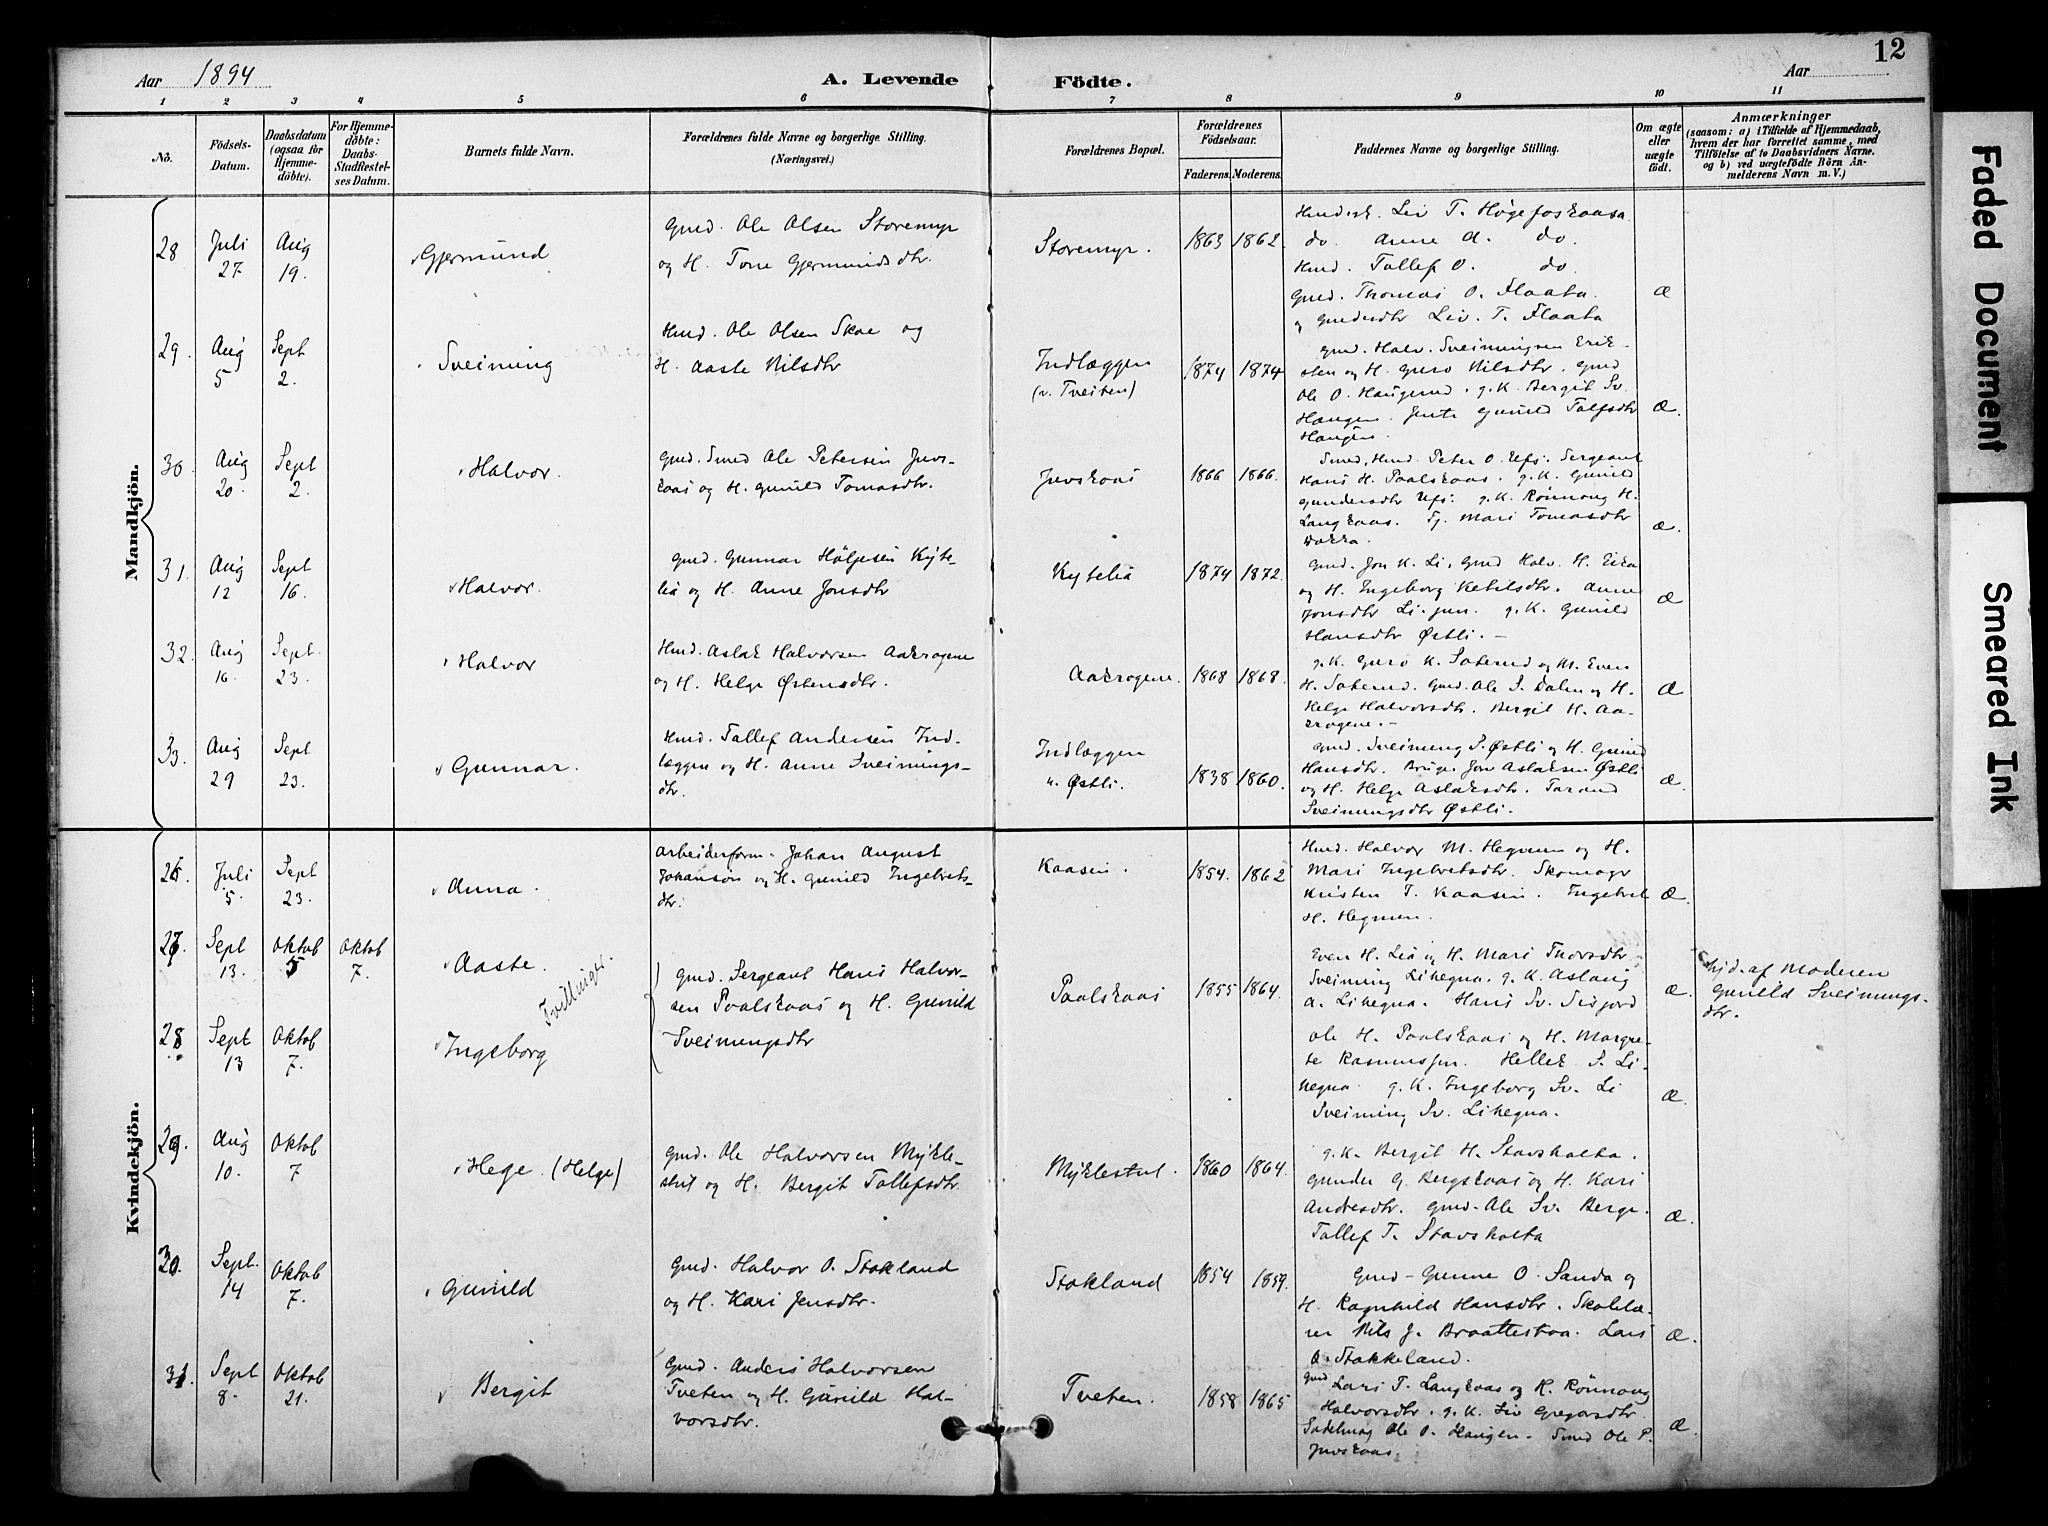 Aar 1894
A. Levende Födte.
Aar
12
1 2 3 4 5 6 7 8 9 10 11
No.
Födsels-Datum.
Daabsdatum (ogsaa for Hjemme-döbte).
For Hjemme-döbte: Daabs-Stadfestel-ses Datum.
Barnets fulde Navn.
Forældrenes fulde Navne og borgerlige Stilling. (Næringsvei.)
Forældrenes Bopæl.
Forældrenes Födselsaar.
Faderens. Moderens.
Faddernes Navne og borgerlige Stilling.
Om ægte eller uægte födt.
Anmærkninger
(saasom: a) i Tilfælde af Hjemmedaab, hvem der har forrettet samme, med Tilföielse af to Daabsvidners Navne, og b) ved uægtefödte Börn An-melderens Navn m. V.)
Mandkjön.
28 Juli 27 Aug 19. Gjermund
Gmd. Ole Olsen Storemyr
og H. Tone Gjermundsdtr.
Storemyr. 1863 1862.
Liv T. Høgefoskaasa
do. Anne A. do.
Hmd. Tallef O. do.
Gmd. Thomas O. Flaata.
og Liv. T. Flaata
Æ
29. Aug 5 Sept 2. Sveinung
Hmd. Ole Olsen Skoe og
H. Aaste Nilsdtr
Indlæggen
(v. Tveiten) 1874 1874
Gmd. Halv. Sveinungsen Erik-
sten og H. Guro Nilsdtr. Gmd
Ole O. Haugerud. g. K. Bergit Sv.
Haugen. Jente Gunild Talfsdtr
Haugen.
Æ.
30. Aug 20. Sept 2. Halvor.
Gmd. Smed Ole Petersen Juvs-
kaas og H. Gunild Tomasdtr.
Juvskaas 1866 1866.
Smed, Hmd. Peter O. Ufs. Sergeant
Hans H. Paalskaas. g. K. Gunild
Gundersdtr Ufs. g. K. Rönnaug H.
Langkaas. Tj. Mari Tomasdtr
Æ.
31. Aug 12 Sept 16. Halvor.
Gmd. Gunnar Hölje­sen Kyte-
lia og H. Anne Jonsdtr
Kytelia 1874 1872.
Gmd. Jon K. Li, Gmd Halv. H. Eika
og H. Ingeborg Ketilsdtr. Anne
Jonsdtr Li. jun. g. K. Gunild
Hansdtr Østli. –
Æ
32. Aug 16. Sept. 23. Halvor
Hmd. Aslak Halvorsen Aakrogene
og H. Helge Østensdtr.
Aakrogene. 1868 1868.
g. K. Guro K. Saterud og M. Even
H. Saterud. Gmd. Ole S. Dalen og H.
Helge Halvorsdtr. Bergit H. Aa-
krogene. –
Æ
33. Aug 29 Sept 23. Gunnar.
Hmd. Tallef Andersen Ind-
læggen og H. Anne Sveinungs-
dtr.
Indlæggen
u. Østli. 1838 1860.
Gmd. Sveinung S. Østli og H. Gunild
Hansdtr. Bruger Jon Aslaksen Østli
og H. Helge Aslaksdtr. Tarand
Sveinungsdtr Østli.
Æ.
Kvindekjön.
26. Juli 5. Sept 23. Anna.
Arbeiderform. Johan August
Johanson og H. Gunild Ingebrets-
dtr.
Kaasen. 1854. 1862
Hmd. Halvor M. Hegnen og H.
Mari Ingebretsdtr. Skomager
Kristen T. Kaasen. Ingebret
H. Hegnen.
Æ.
27. Sept 13. Oktob 5 Oktob 7. Aaste.
Tvillinger.
Gmd. Sergeant Hans Halvor-
sen Paalskaas og H. Gunild
Sveinungsdtr
Paalskaas 1855 1864.
Even H. Lia og H. Mari Thorsdtr
Sveinung Lihegna. g. K. Aslaug
A. Lihegna. Hans Sv. Seljord
Æ.
Hjd. af Moderen
Gunild Sveinungs-
dtr.
28. Sept 13 Oktob 7. Ingeborg
Ole H. Paalskaas og H. Margre-
te Rasmussen. Hellek S. Li-
hegna. g. K. Ingeborg Sv. Li
Sveinung Sv. Lihegna.
Æ.
29. Aug 10. Oktob 7 Hege. (Helge)
Gmd. Ole Halvorsen Mykle-
stul og H. Bergit Tallefsdtr.
Myklestul. 1860 1864.
g. K. Bergit H. Stavsholta.
Gunder G. Bergskaas og H. Kari
Andresdtr. Gmd. Ole Sv. Berge.
Tallef T. Stavsholta
Æ.
30. Sept. 14 Oktob 7. Gunild
Gmd. Halvor O. Stokland
og H. Kari Jensdtr.
Stokland 1854 1859.
Gmd – Gunne O. Sanda og
H. Ragnhild Hansdtr. Skolelæ-
rer Nils J. Braattestaa. Lars
O. Stokkeland.
Æ.
31. Sept 8. Oktob 21. Bergit
Gmd. Anders Halvorsen
Tveten og H. Gunild Hal-
vorsdtr.
Tveten. 1858 1865
Gmd Lars T. Langkaas og H. Rönnaug
Halvorsdtr. g. K. Liv Gregarsdtr.
Sadelmag Ole O. Haugen. Smed Ole P.
Juvskaas.
Æ.
Faded Document
Smeared Ink